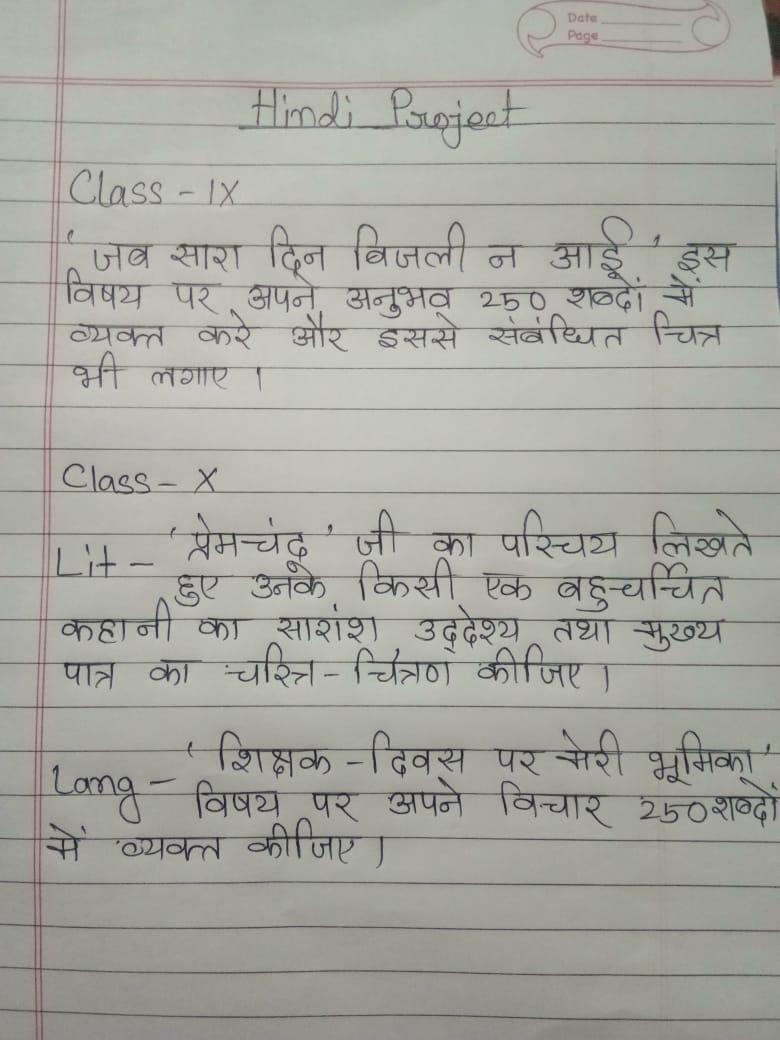 Date
Page
Hindi Project
Class - IX
'जब सारा दिन बिजली न आई' इस
विषय पर अपने अनुभव 250 शब्दों में
व्यक्त करे और इससे संबंधित चित्र
भी लगाए ।
Class - X
Lit - 'प्रेमचंद' जी का परिचय लिखते
हुए उनके किसी एक बहुचर्चित
कहानी का सारांश उद्देश्य तथा मुख्य
पात्र का चरित्र - चित्रण कीजिए ।
Lang - 'शिक्षक - दिवस पर मेरी भूमिका'
विषय पर अपने विचार 250 शब्दों
में व्यक्त कीजिए ।